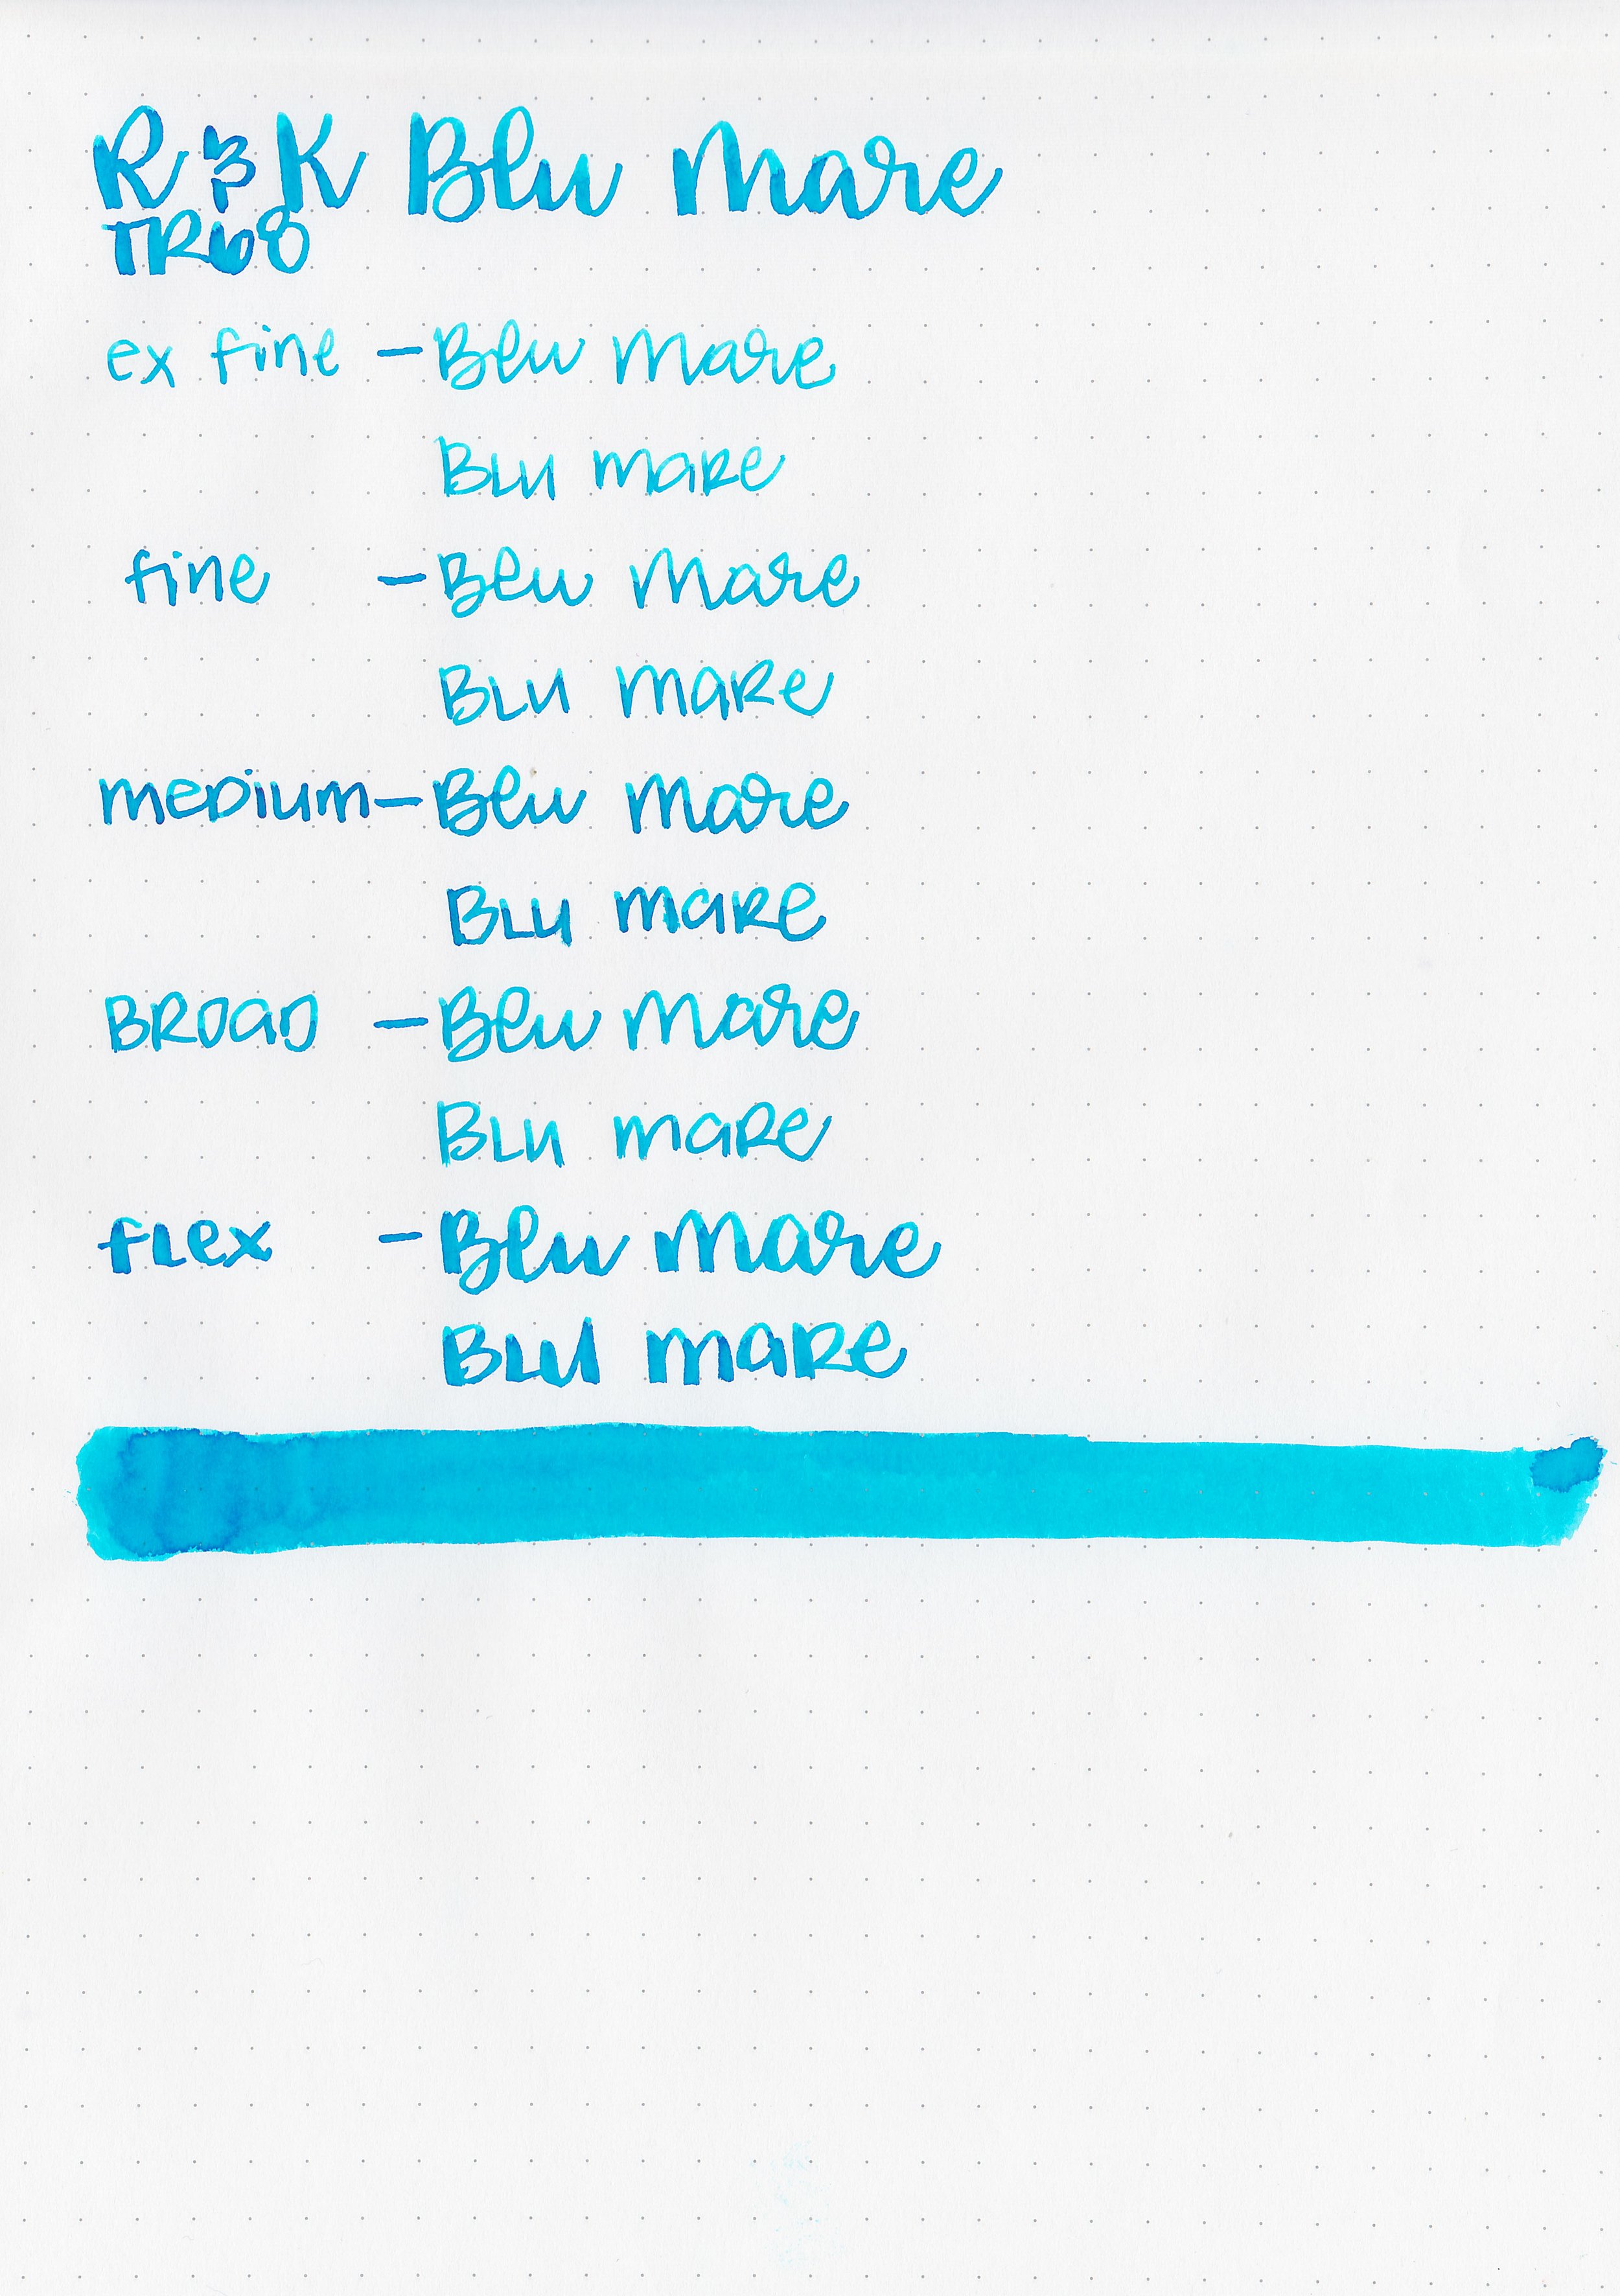 R & K Blu Mare
TR68
ex fine - Blu Mare
BLU maRe
fine - Blu Mare
BLU maRe
meDium - Blu Mare
BLU maRe
BROaD - Blu Mare
BLU maRe
fLex - Blu Mare
BLU maRe